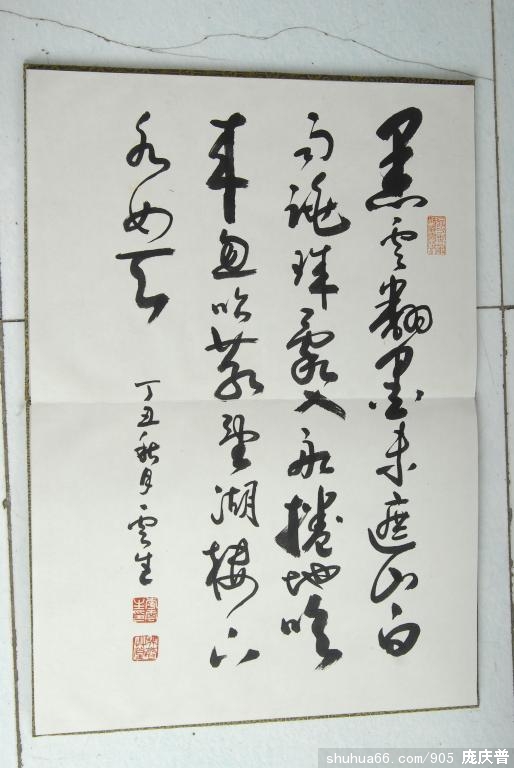 黑雲翻墨未遮山白
雨跳珠亂入船捲地
来忽吹散望湖樓下
水如天
丁丑秋月雲生
shuhua66.com/905 庞庆普